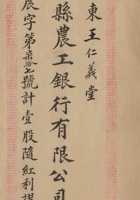 東王仁義堂
縣農工銀行有限公司
辰字第柒拾七號計壹股隨紅利摺